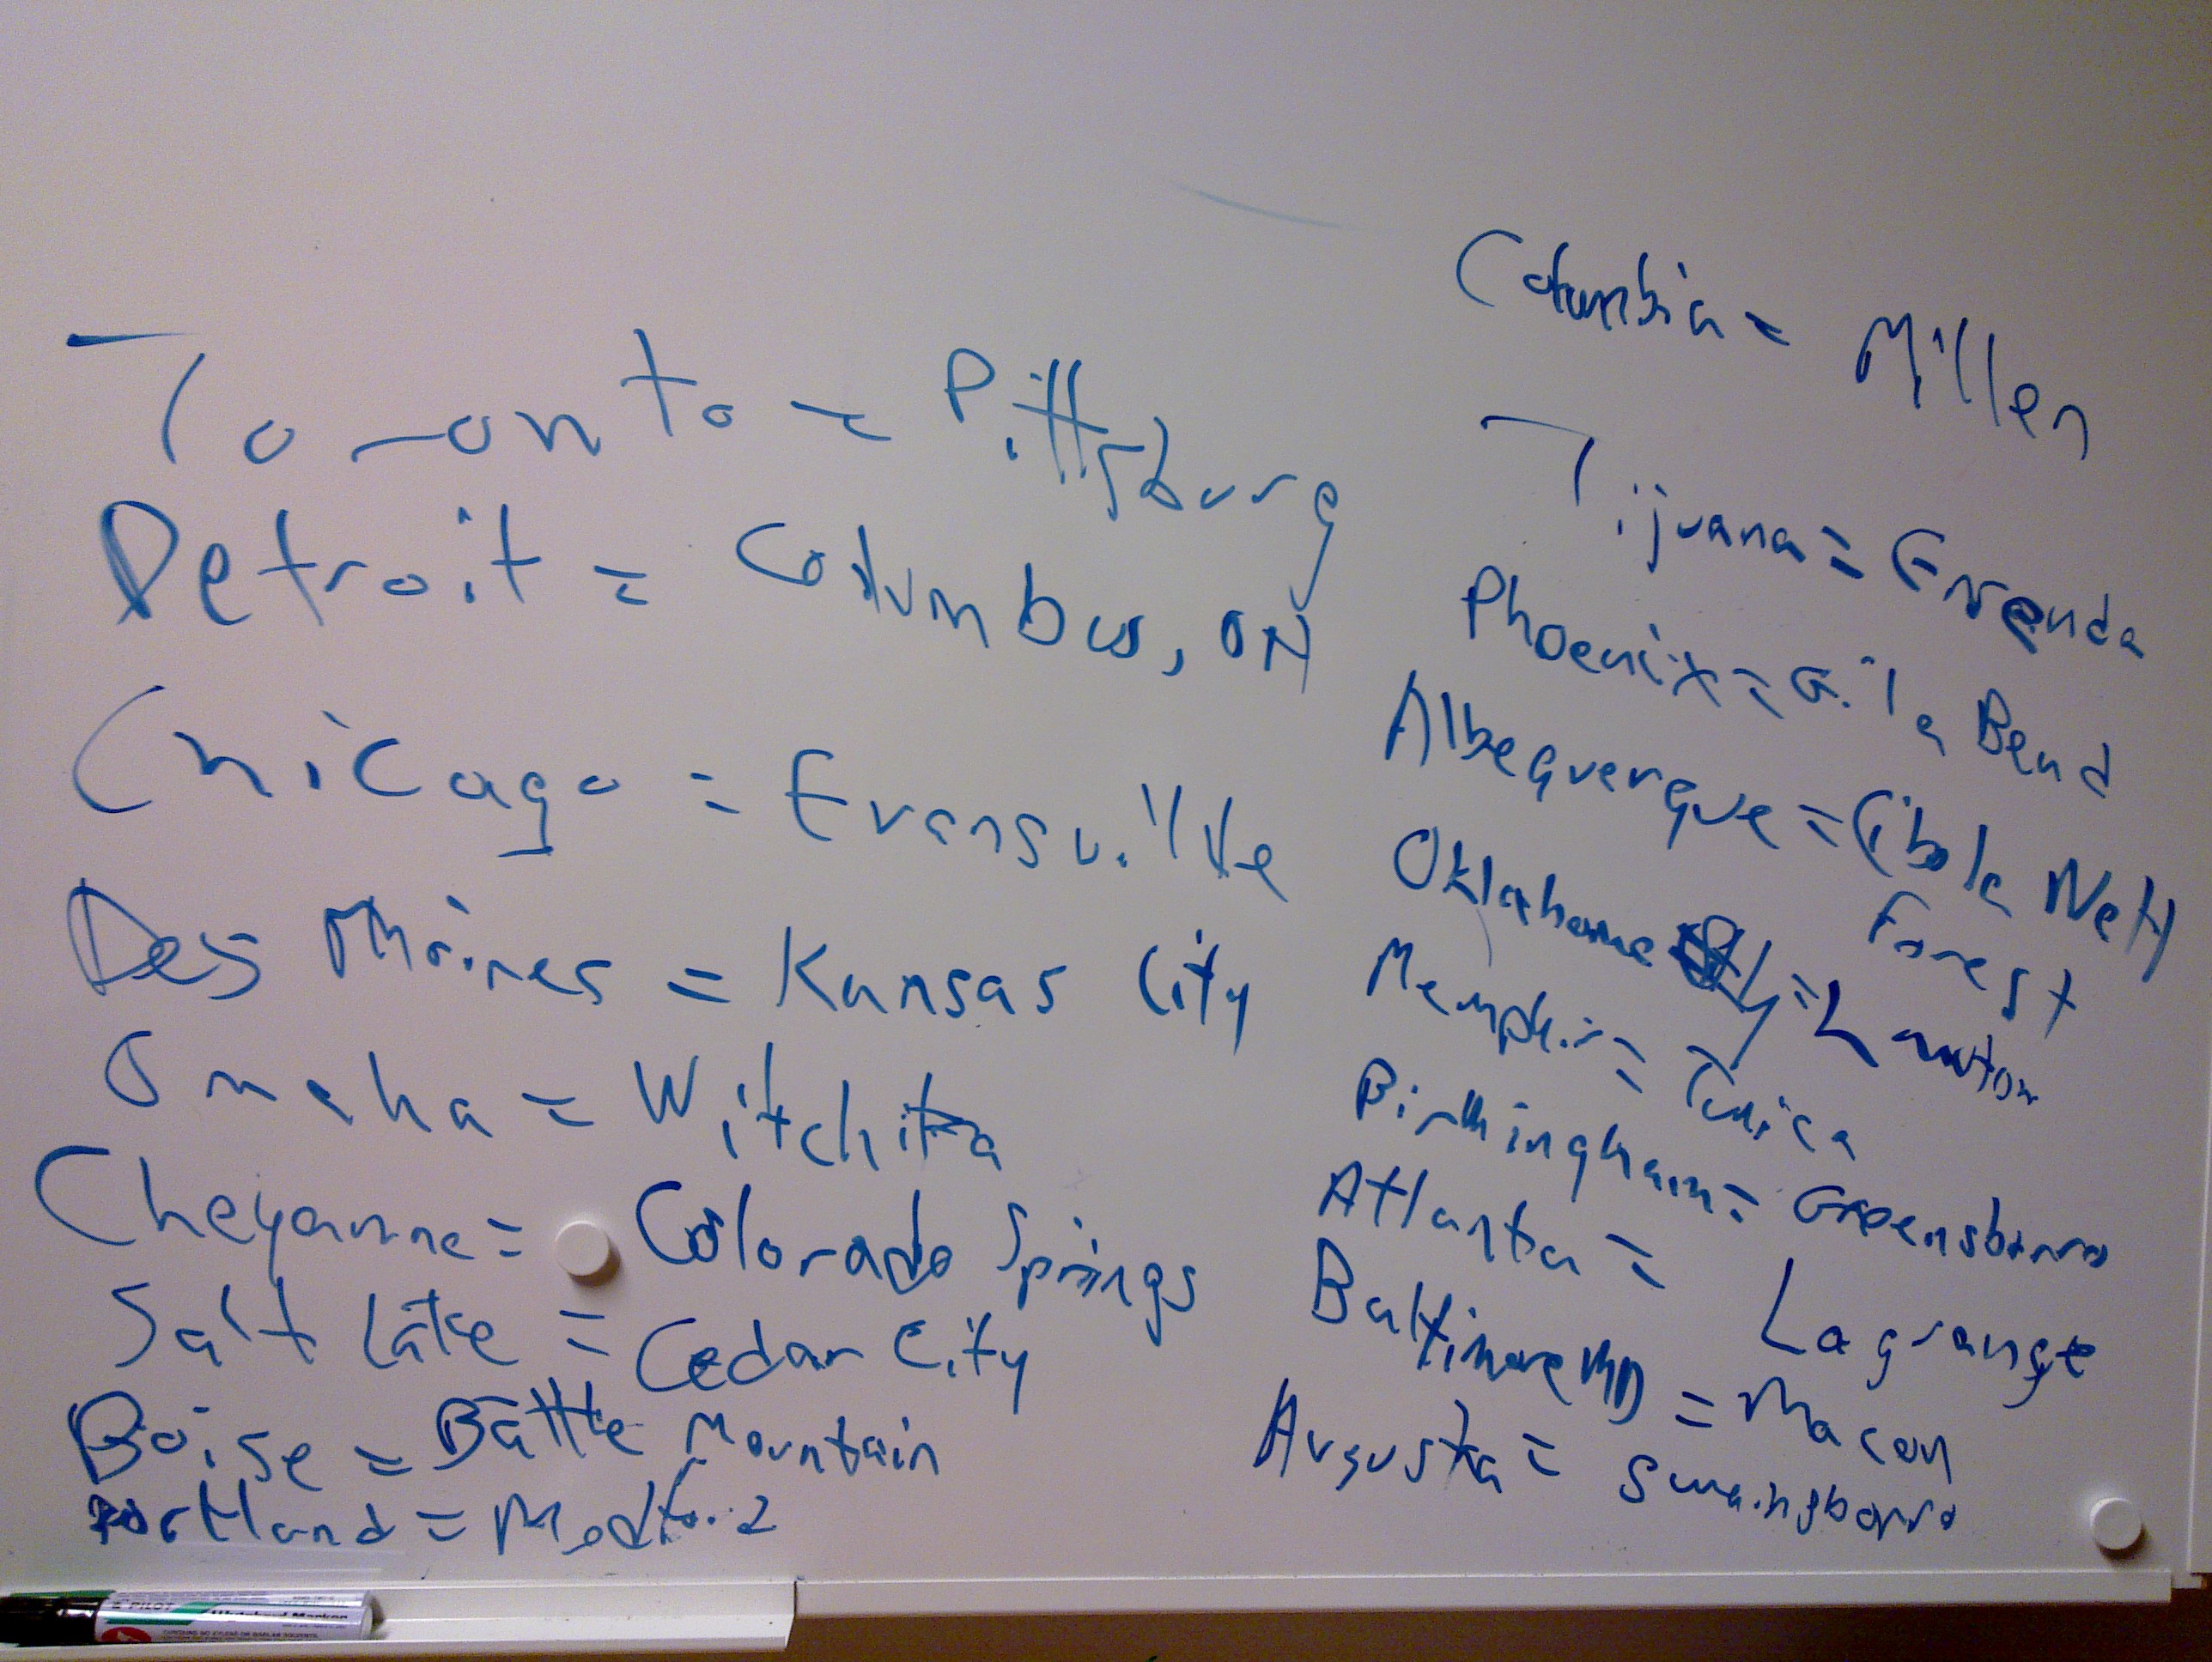 Toronto = Pittsburg
Detroit = Columbus, OH
Chicago = Evansville
Des Moines = Kansas City
Omaha = Witchita
Cheyanne = Colorado Springs
Salt Lake = Cedar City
Boise = Battle Mountain
Portland = Medford
Columbia = Millen
Tijuana =
Phoenix = Gila Bend
Albequerque = Cibola Natl
Forest
Oklahoma City = Lawton
Memphis = Tunica
Birmingham = Greensboro
Atlanta = Lagrange
Baltimore MD = Macon
Augusta = Swainsboro
PILOT